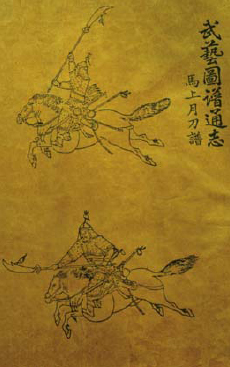 武藝圖譜通志
馬上月刀譜